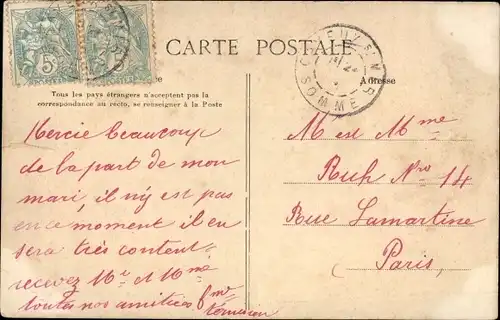 CARTE POSTALE
Tous les pays étrangers n'acceptent pas la
correspondance au recto, se renseigner à la Poste
Adresse
SOMME
5
5
Mercie beaucoup
de la part de mon
mari, il n'y est pas
en ce moment il en
sera très content
recevez Mr et Mme
toutes nos amitiées
M et Mme
Ruh Nro 14
Rue Lamartine
Paris,